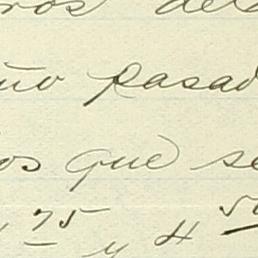 ros del
ño pasad
os que se
75 y # 50